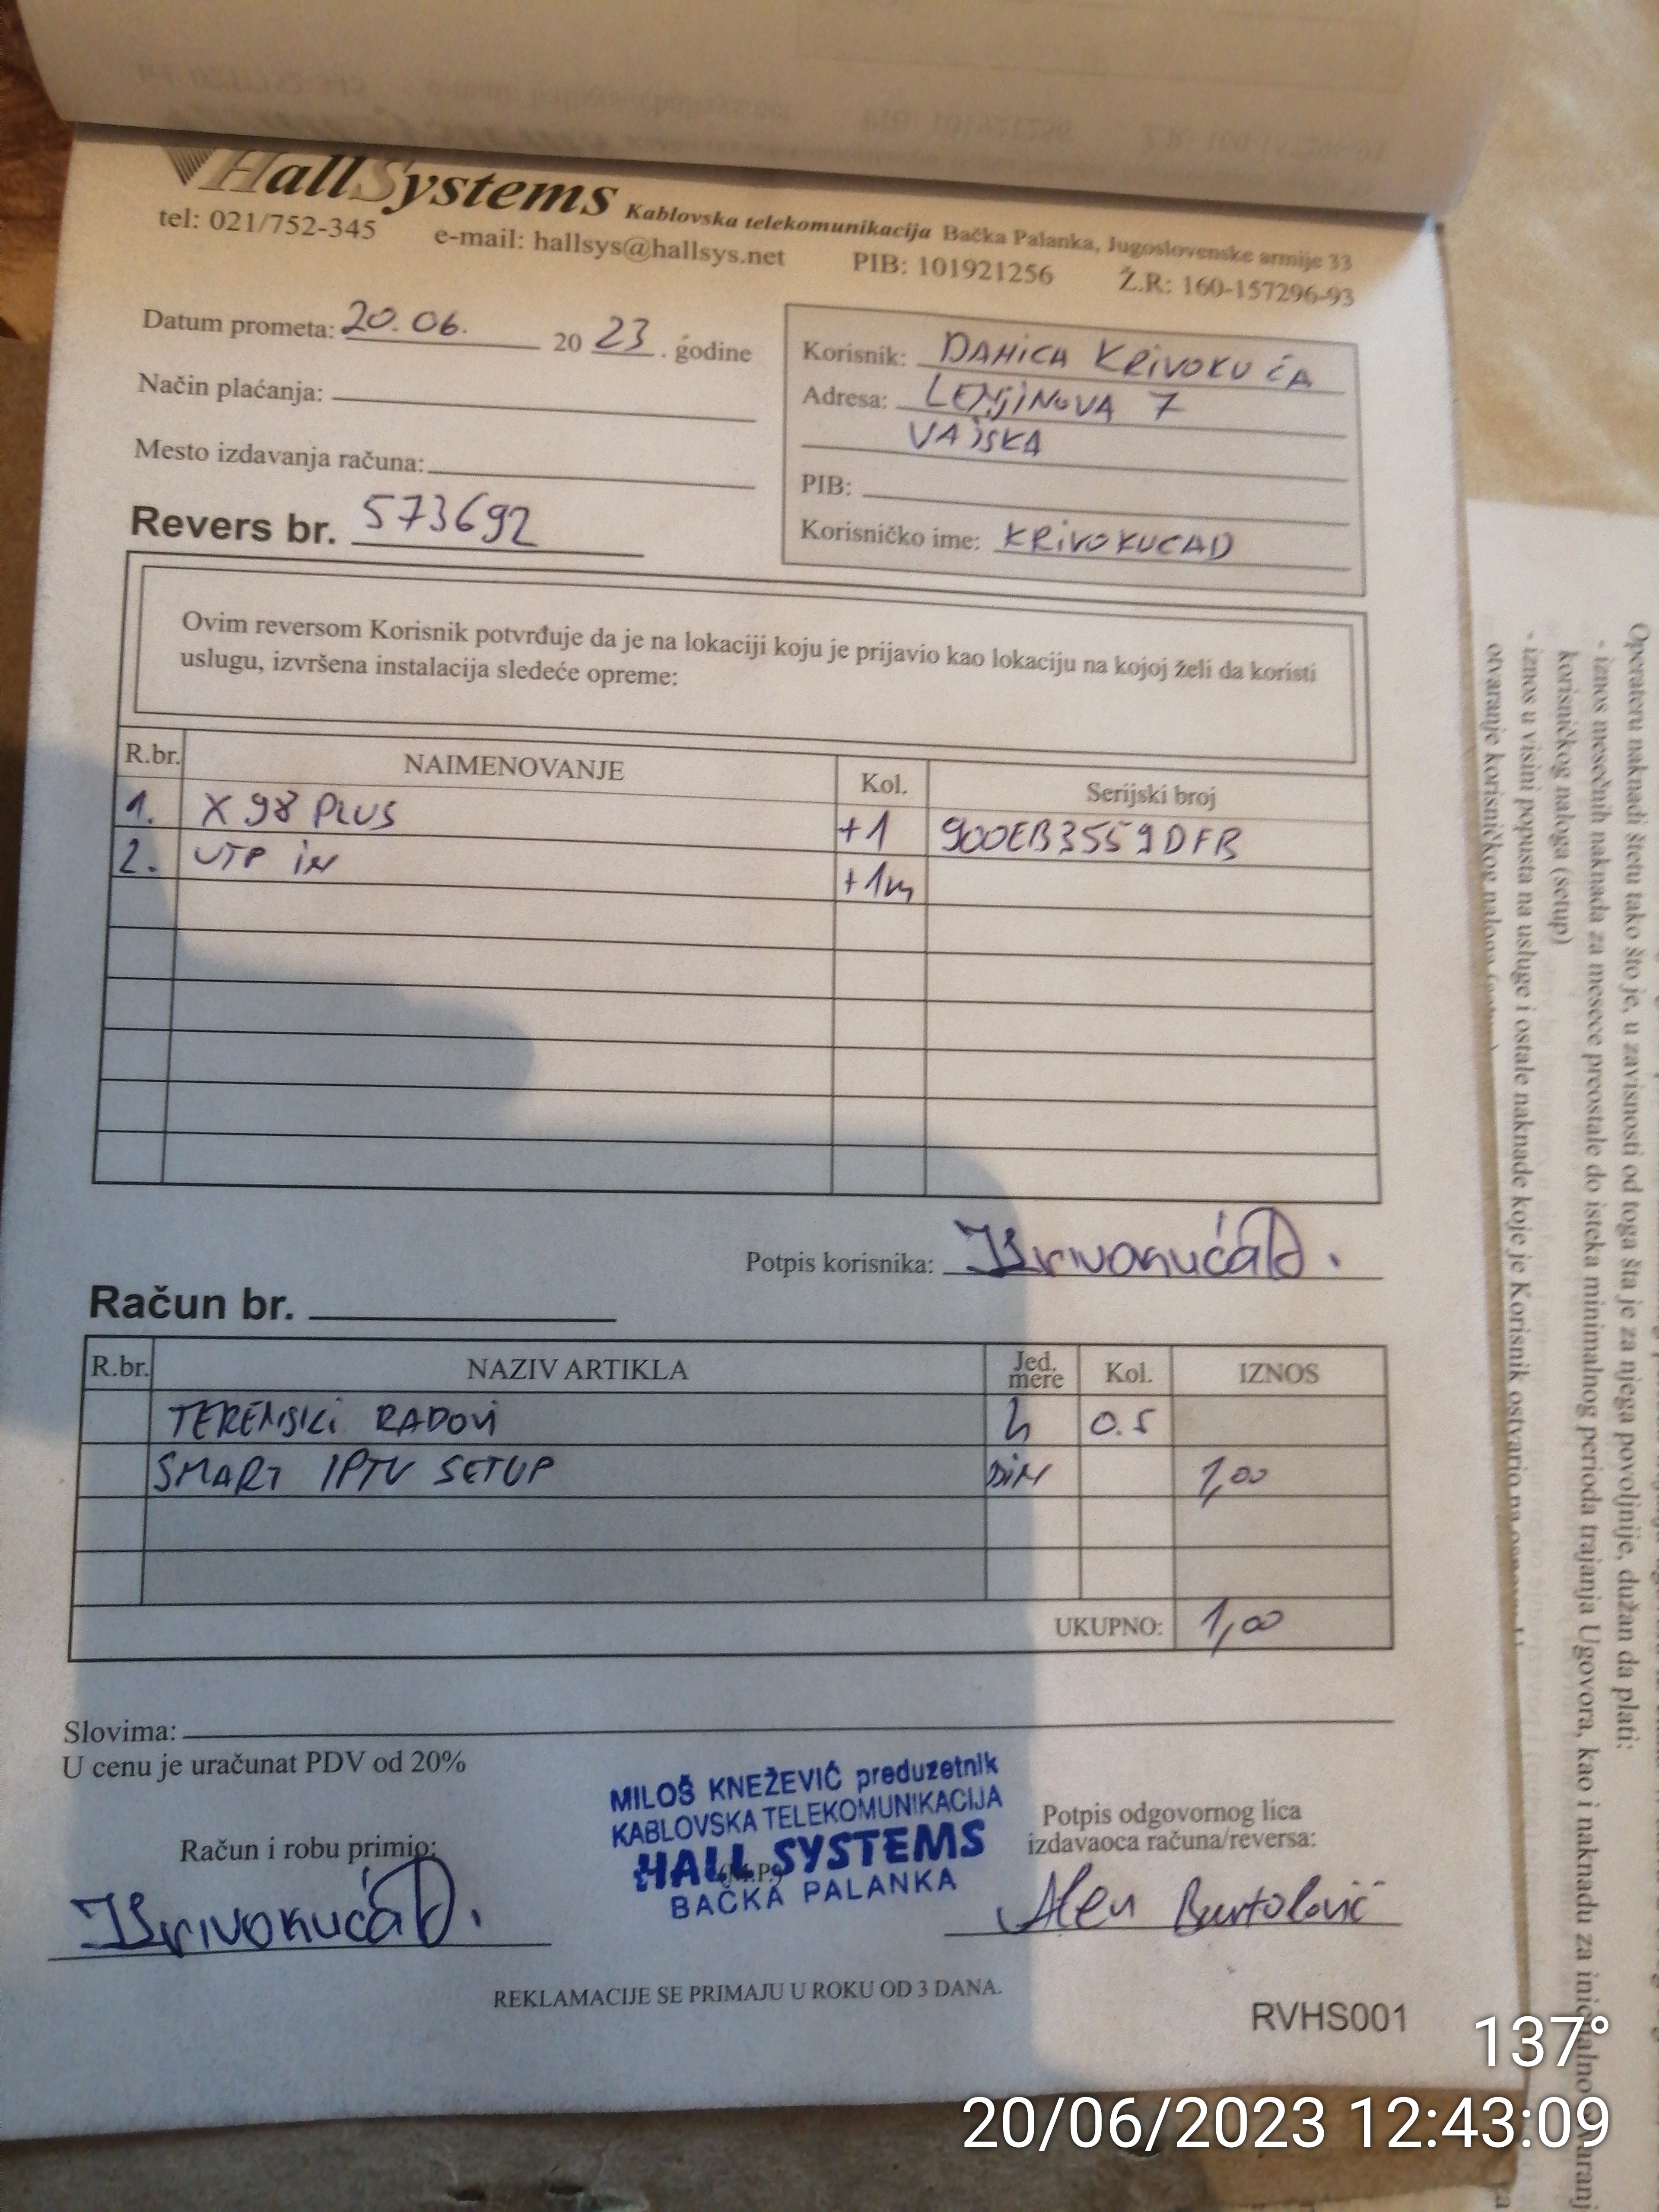 HallSystems Kablovska telekomunikacija Bačka Palanka, Jugoslovenske armije 33
tel: 021/752-345 e-mail: hallsys@hallsys.net PIB: 101921256 Ž.R: 160-157296-93
Datum prometa: 20.06. 2023. godine
Način plaćanja:
Mesto izdavanja računa:
Revers br. 573692
Korisnik: DANICA KRIVOKUĆA
Adresa: LENJINOVA 7
VAJSKA
PIB:
Korisničko ime: KRIVOKUCAD
Ovim reversom Korisnik potvrđuje da je na lokaciji koju je prijavio kao lokaciju na kojoj želi da koristi
uslugu, izvršena instalacija sledeće opreme:
R.br. NAIMENOVANJE Kol. Serijski broj
1. X98 PLUS +1 900EB3559DFB
2. UTP IN +1m
Potpis korisnika: Krivokuća D.
Račun br.
R.br. NAZIV ARTIKLA Jed. mere Kol. IZNOS
TERENSKI RADOVI h 0.5
SMART IPTV SETUP DIN 1,00
UKUPNO: 1,00
Slovima:
U cenu je uračunat PDV od 20%
Račun i robu primio:
Krivokuća D.
MILOŠ KNEŽEVIĆ preduzetnik
KABLOVSKA TELEKOMUNIKACIJA
HALL SYSTEMS
(M.P.)
BAČKA PALANKA
Potpis odgovornog lica
izdavaoca računa/reversa:
Alen Bartolović
REKLAMACIJE SE PRIMAJU U ROKU OD 3 DANA.
RVHS001
Operateru naknadi štetu tako što je, u zavisnosti od toga šta je za njega povoljnije, dužan da plati:
- iznos mesečnih naknada za mesece preostale do isteka minimalnog perioda trajanja Ugovora, kao i naknadu za inicijalno otvaranje
korisničkog naloga (setup)
- iznos u visini popusta na usluge i ostale naknade koje je Korisnik ostvario na
otvaranje korisničkog naloga
137°
20/06/2023 12:43:09